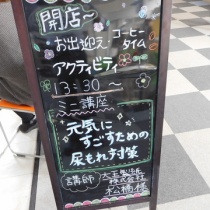 開店～
お出迎え・コーヒー
タイム
アクティビティ
13:30～
ミニ講座
元気に
すごすための
尿もれ対策
講師 大王製紙
株式会社
松楠様